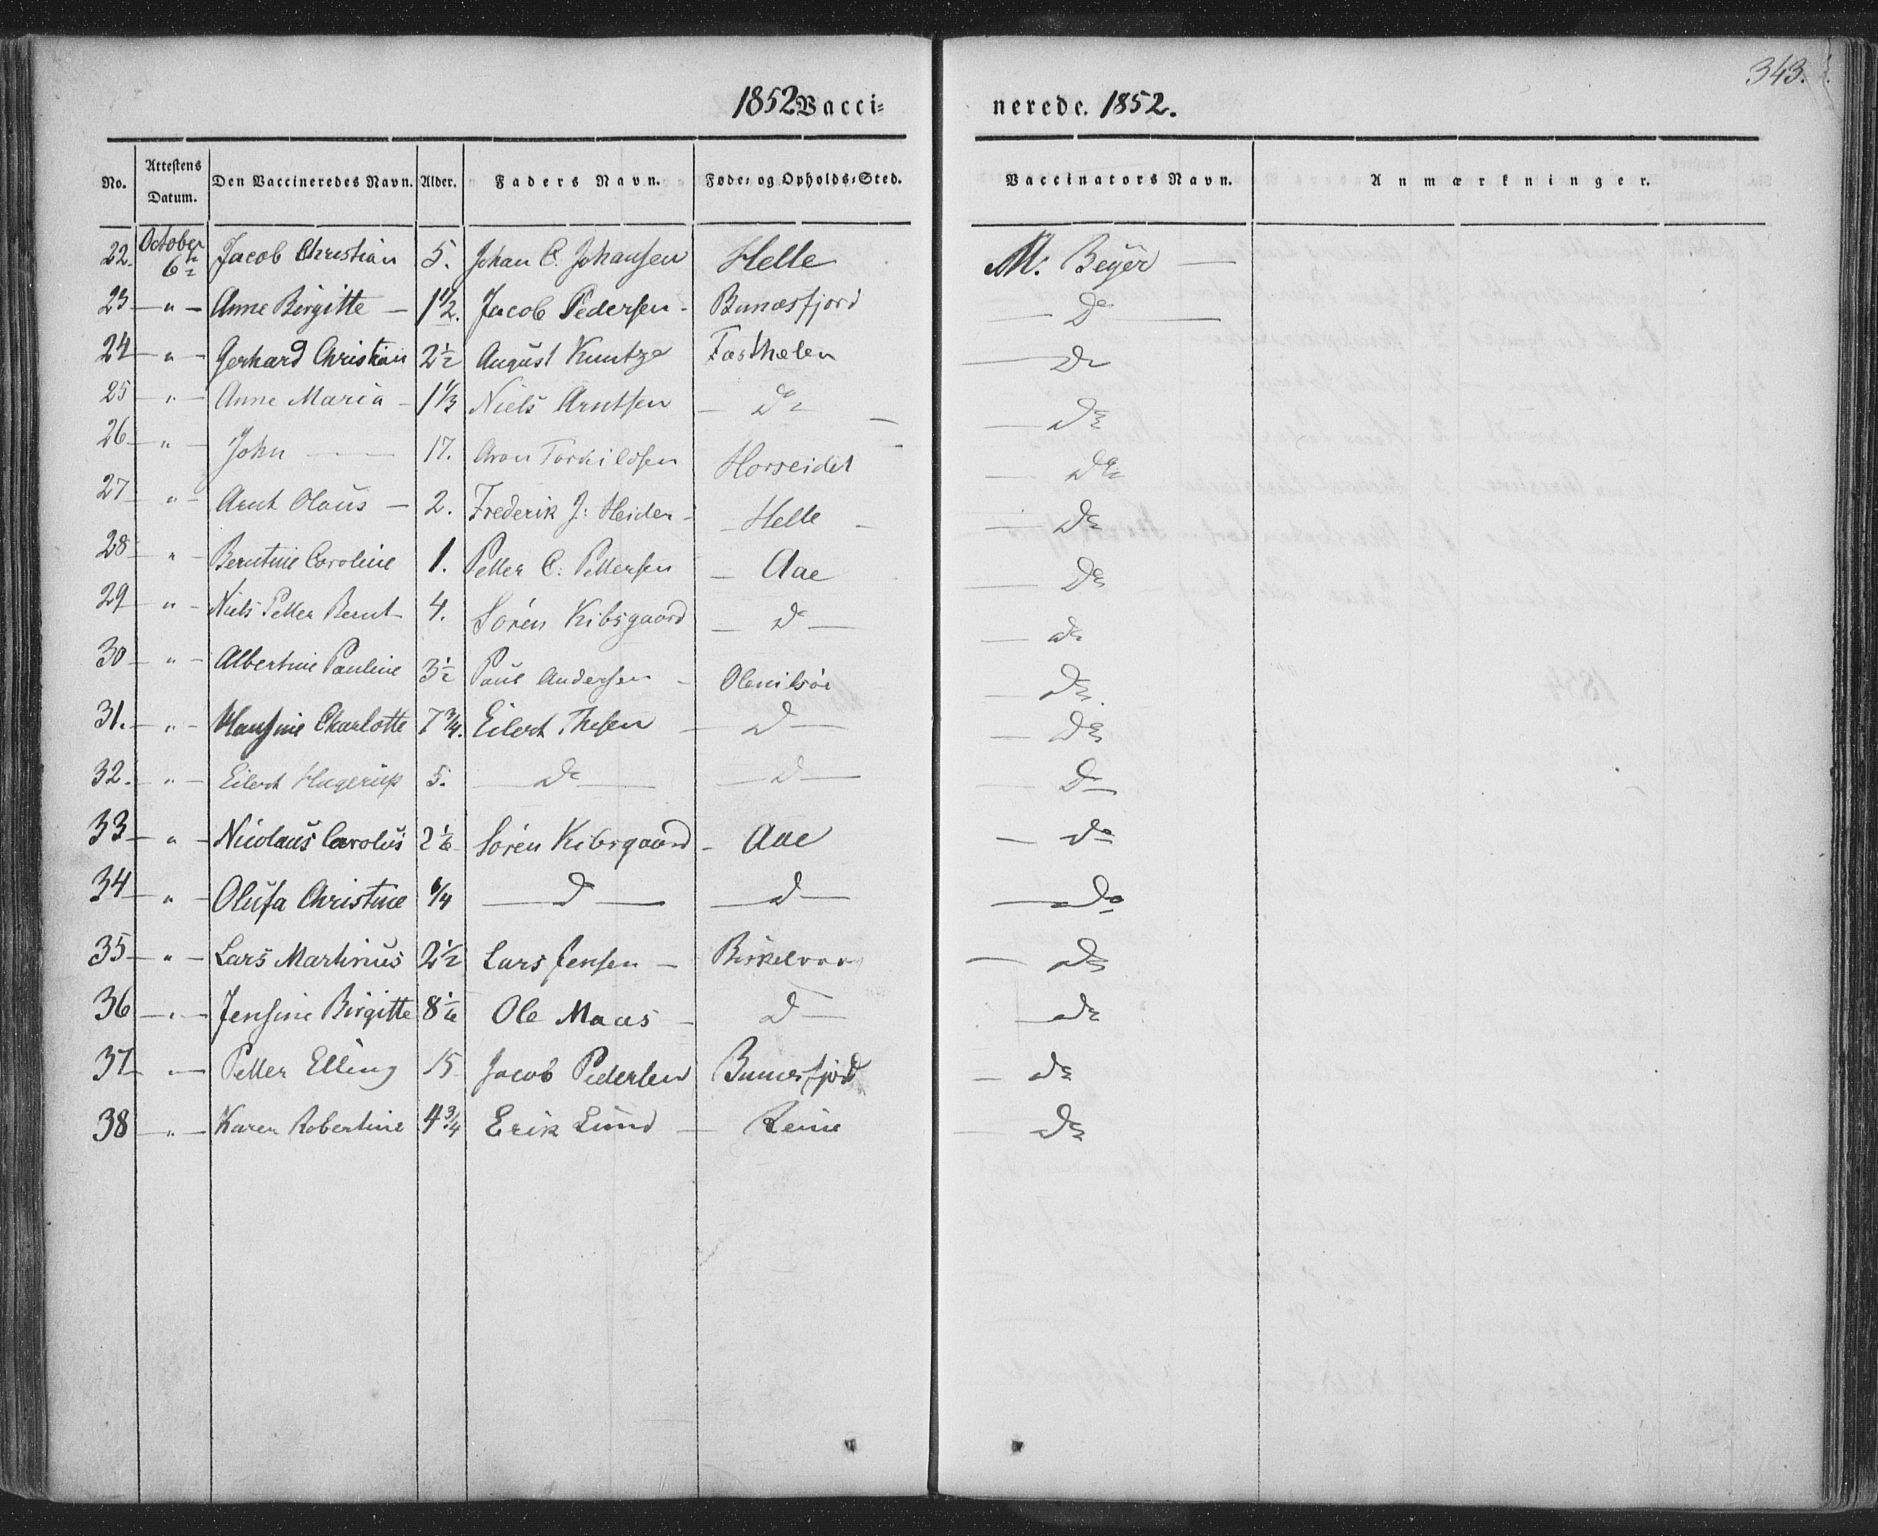 343.
1852 Vacci= nerede. 1852.
No. Attestens Datum. Den Vaccineredes Navn. Alder. Faders Navn. Føde- og Opholds-Sted. Vaccinators Navn. Anmærkninger.
22. October 6te Jacob Christian 5. Johan C. Johansen Helle M. Beyer —
23 — " — Anne Birgitte — 1 1/2. Jacob Pedersen - Bunæsfjord — Do —
24 — " — Gerhard Christian 2 1/2 August Kuntze — Do
25 — " — Anne Maria — 1 1/3 Niels Arntsen — Do — — Do
26 — " John — 17. Aron Torkildsen Horseidet — Do
27 — " — Arnt Olaus — 2. Frederik J: Heider - — Helle — — Do
28 — " Berntine Caroline 1. Petter C. Pettersen — Aae — Do
29 — " — Niels Petter Bernt 4. Sören Kibsgaard — Do — — do
30 — " — Albertine Pauline 3 1/2 Paul Andersen — Olenilsöe — Do.
31. — " — Hansine Charlotte 7 3/4. Eilert Thesen — Do — — Do
32. — " — Eilert Hagerup 5. — Do — — Do — — Do
33 — " — Nicolaus Carolus 2 1/6 Sören Kibsgaard - Aae — do
34 — " Olufa Christine 1/4 — Do — — do — — Do
35 — " — Lars Martinus 2 1/2 Lars Jensen — — Do
36 — " — Jensine Birgitte 8 1/6 Ole Maas — Do — — do
37 — " — Petter Elling 15 Jacob Pedersen Bunæsfjord — do
38 — " — Karen Robertine 4 3/4 Erik Lund — Reine — Do